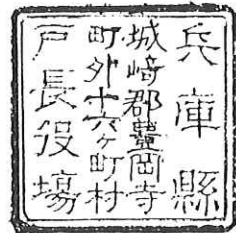 兵庫縣
城崎郡豊岡寺
町外十六ヶ町村
戸長役場